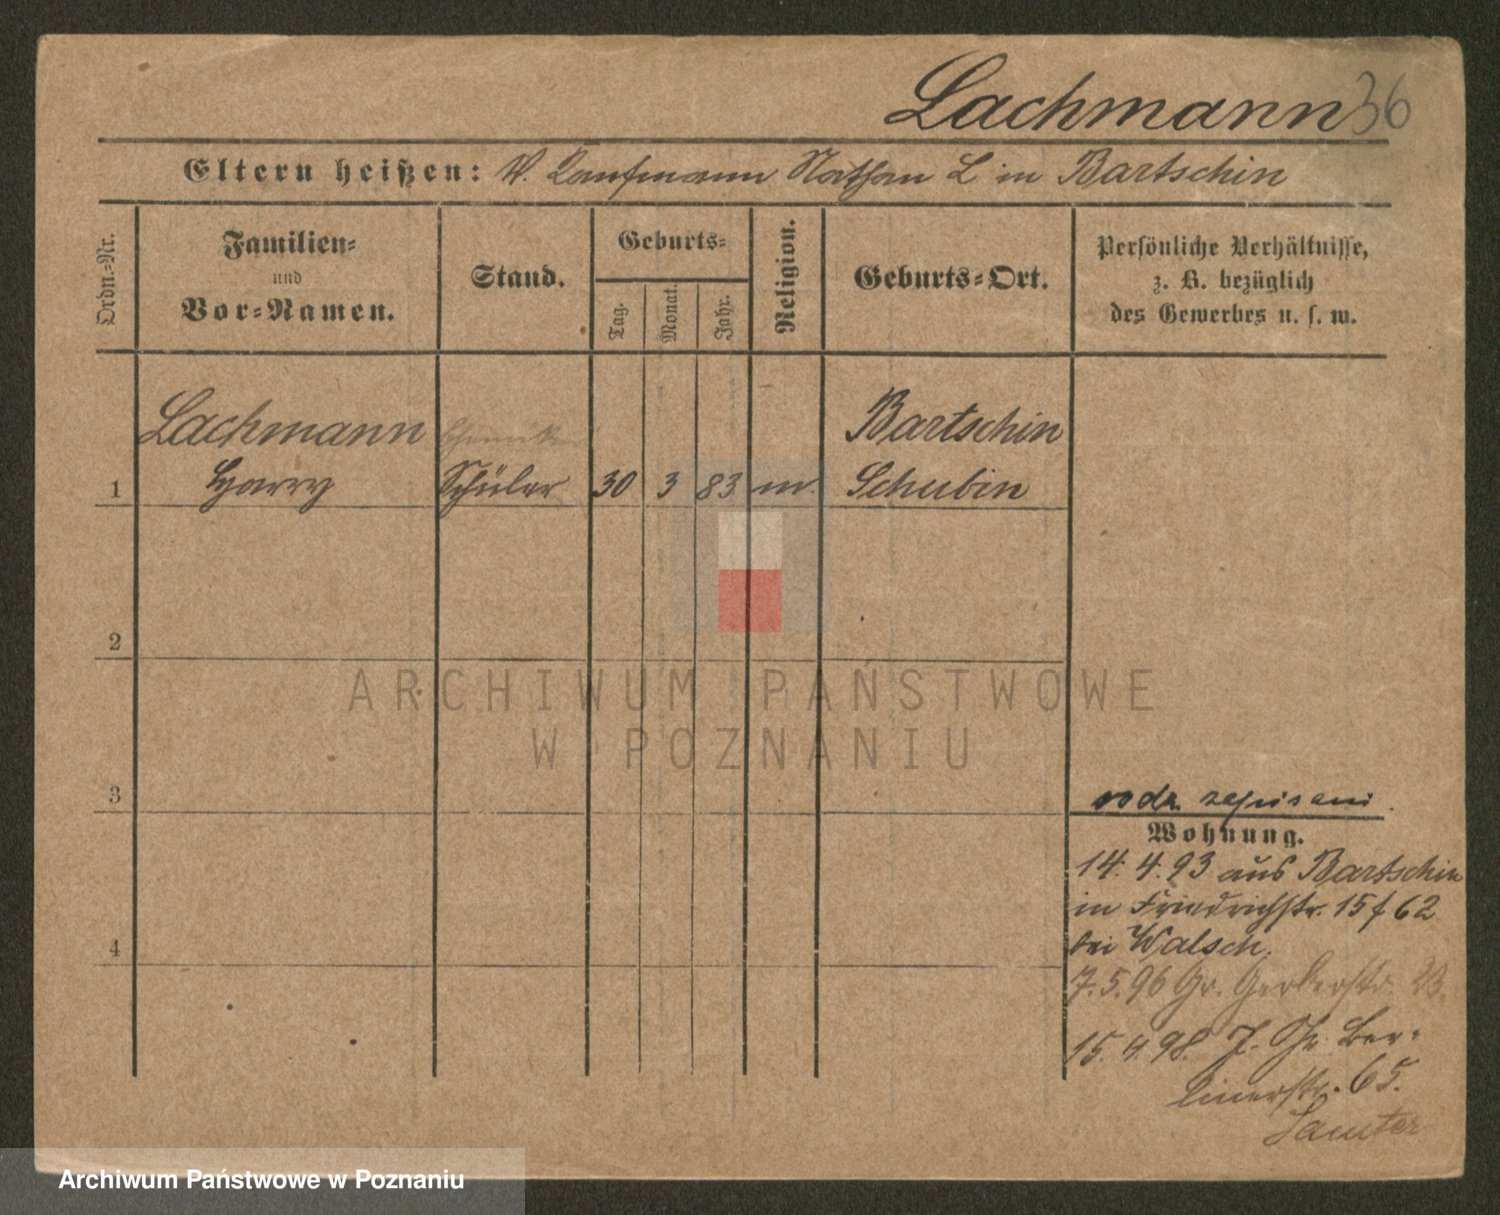 Lachmann 36
Eltern heißen: V. Kaufmann Nathan L in Bartschin
Ordn.-Nr.
Familien-
und
Vor-Namen.
Stand.
Geburts-
Tag.
Monat.
Jahr.
Religion.
Geburts-Ort.
Persönliche Verhältnisse,
z. B. bezüglich
des Gewerbes u. s. w.
Lachmann
Bartschin
1 Harry Schüler 30 3 83 m. Schubin
2
ARCHIWUM PAŃSTWOWE
W POZNANIU
3
Wohnung.
14. 4. 93 aus Bartschin
in Friedrichstr. 15 f 62
bei Walsch.
4
7. 5. 96 Gr. Gerberstr.
15. 4. 98. J. Ber-
linerstr. 65.
Samter
Archiwum Państwowe w Poznaniu